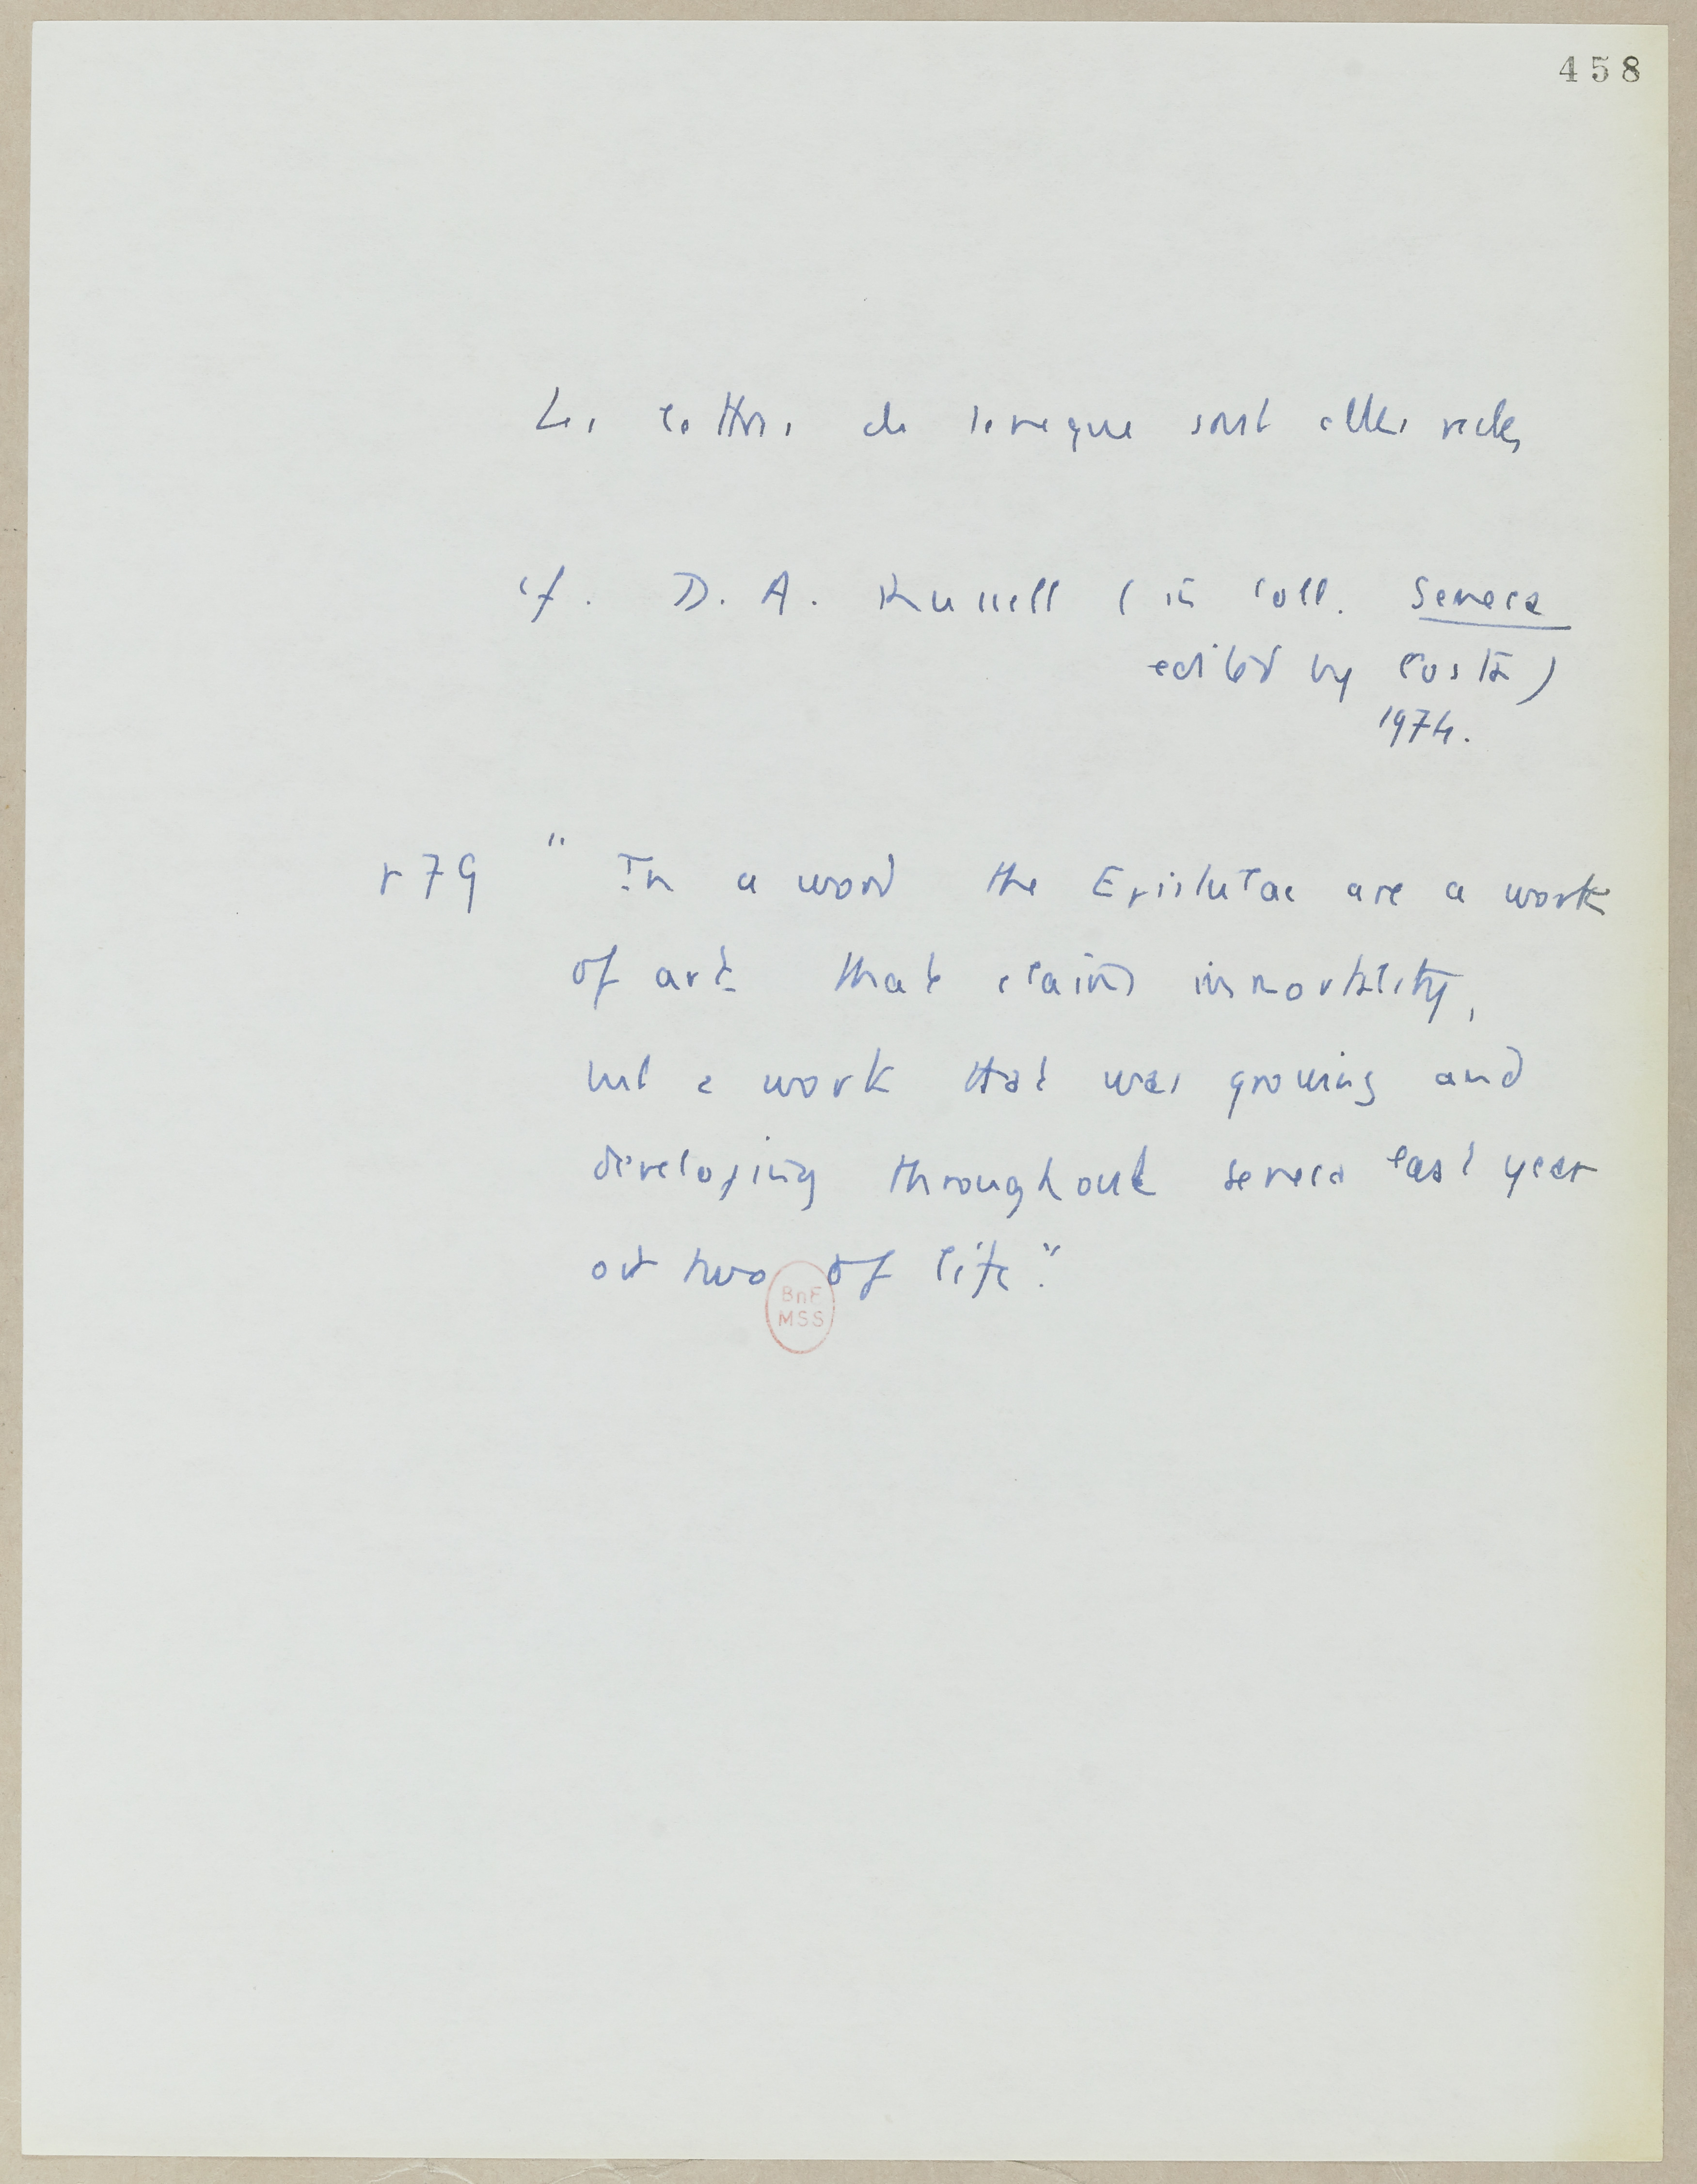 458
Les lettres de Seneque sont elles reelles
cf. D. A. Russell (in coll. Seneca
edited by Costa)
1974.
p 79 " In a word the Epistulae are a work
of art that claims immortality,
but a work that was growing and
developing throughout Seneca last year
or two of life."
BnF
MSS